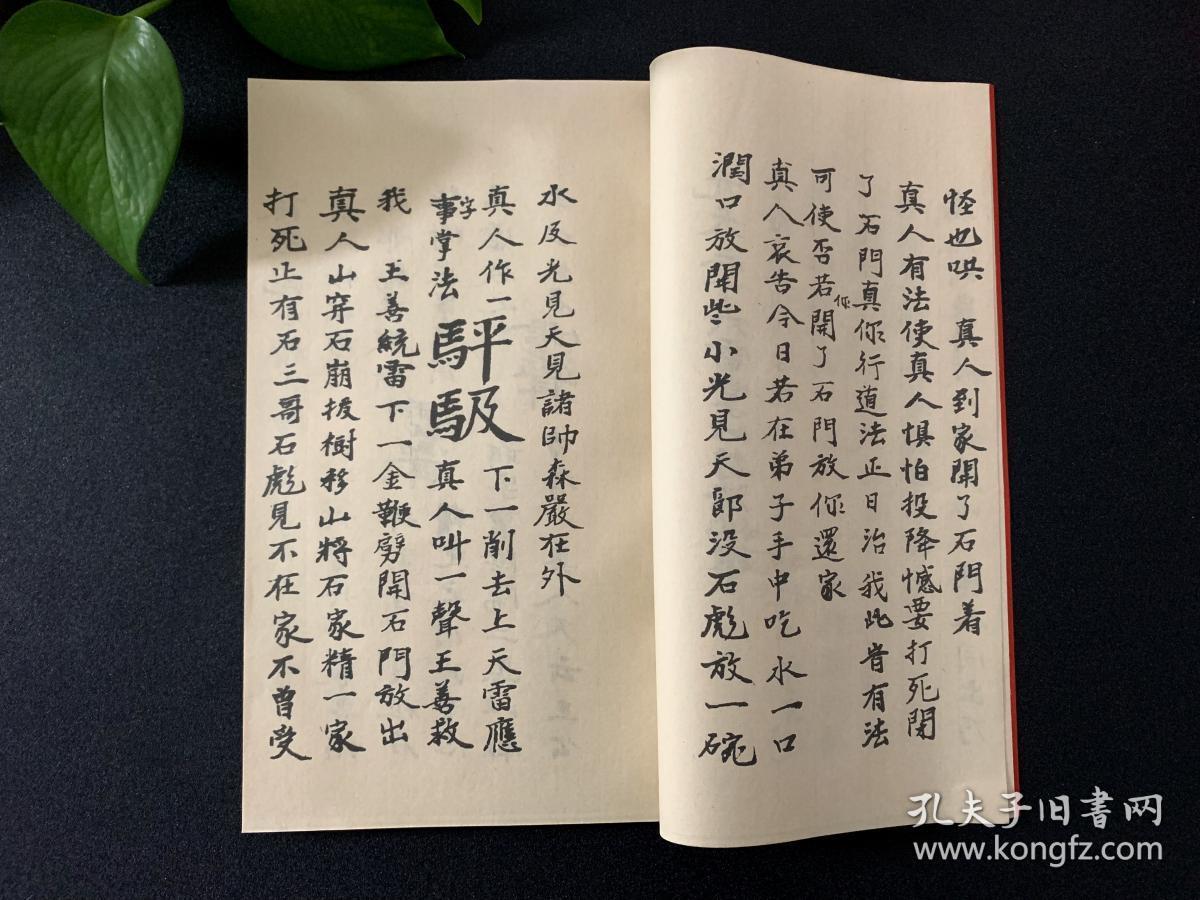 怪也哄　真人到家閉了石門着
真人有法使真人惧怕投降憾要打死閉
了石門真你行道法正日治我此時有法
可使否若你開了石門放你還家
真人哀告今日若在弟子手中吃水一口
潤口放開些小光見天郎没石彪放一碗
水反光見天見諸帥森嚴在外
真人作一字　下一削去上天雷應
事掌法
真人叫一聲王善救
我　王善統雷下一金鞭劈開石門放出
真人山穿石崩拔樹移山將石家精一家
打死止有石三哥石彪見不在家不曾受
孔夫子旧书网
www.kongfz.com